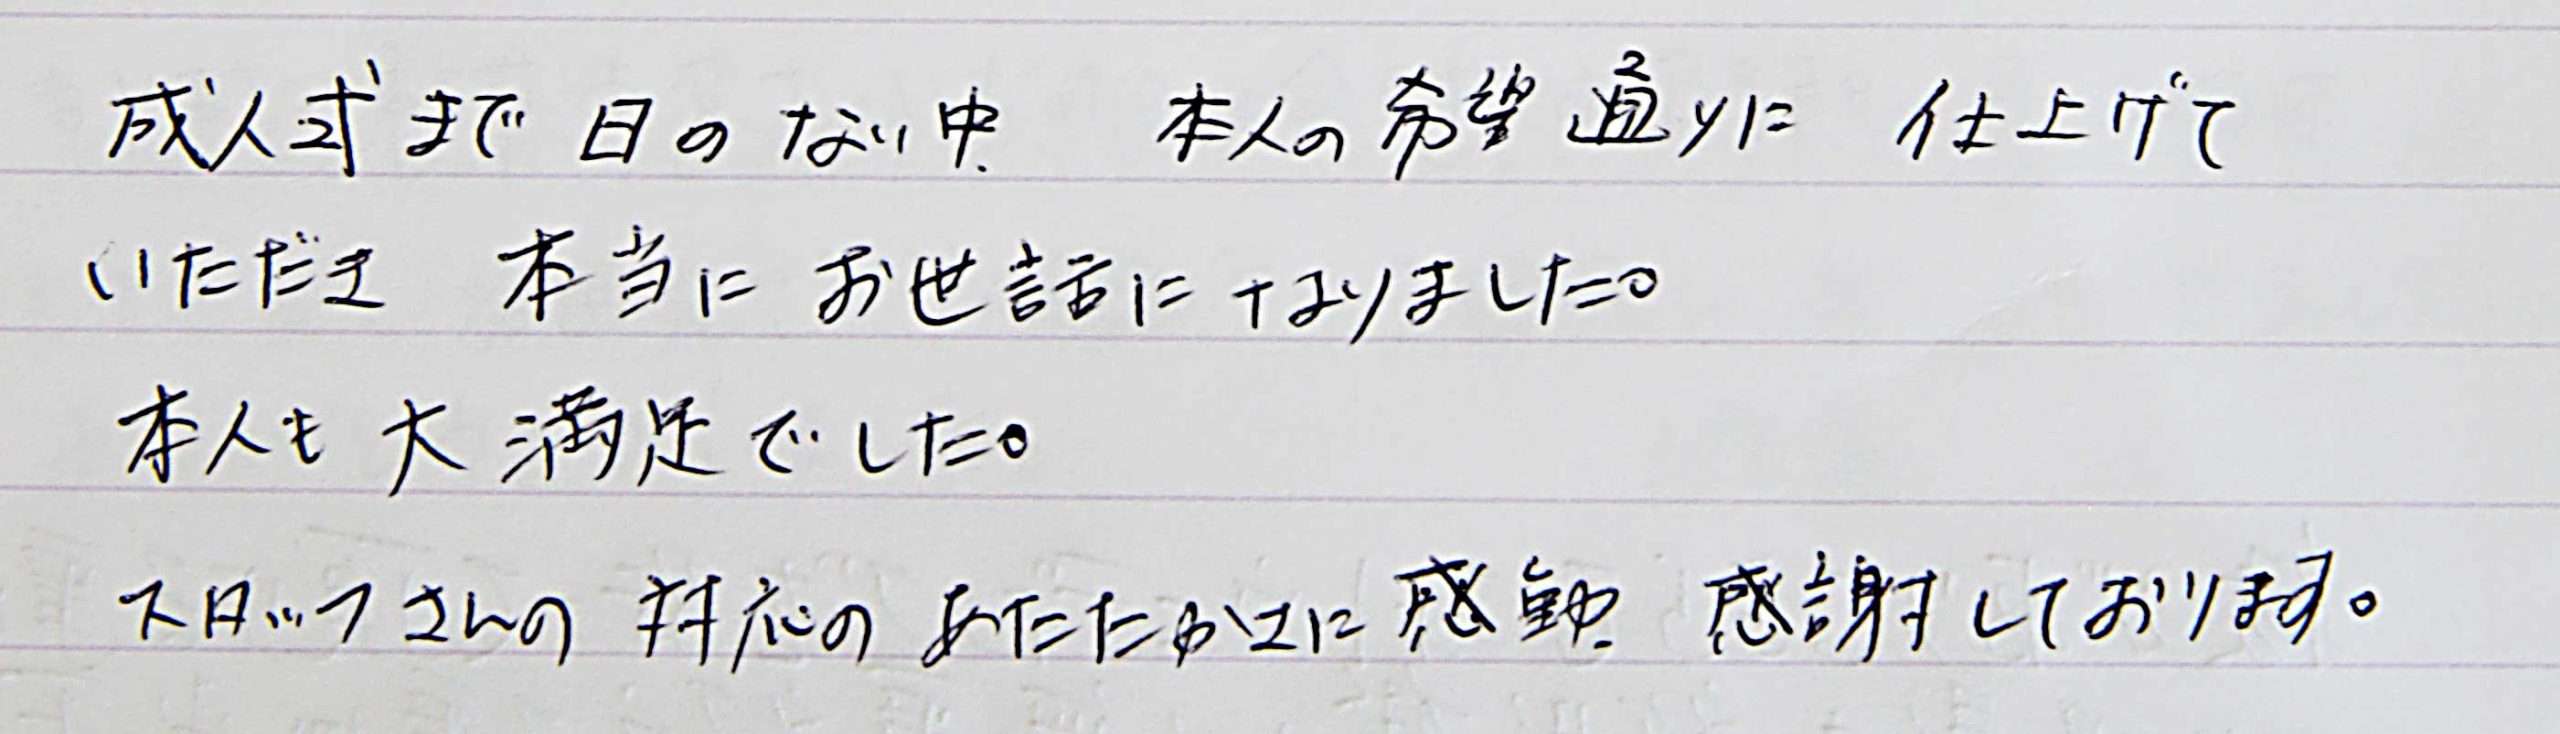 成人式まで 日の ない中 本人の希望通りに 仕上げて
いただき 本当に お世話に なりました。
本人も 大満足でした。
スタッフさんの 対応の あたたかさに 感動 感謝しております。